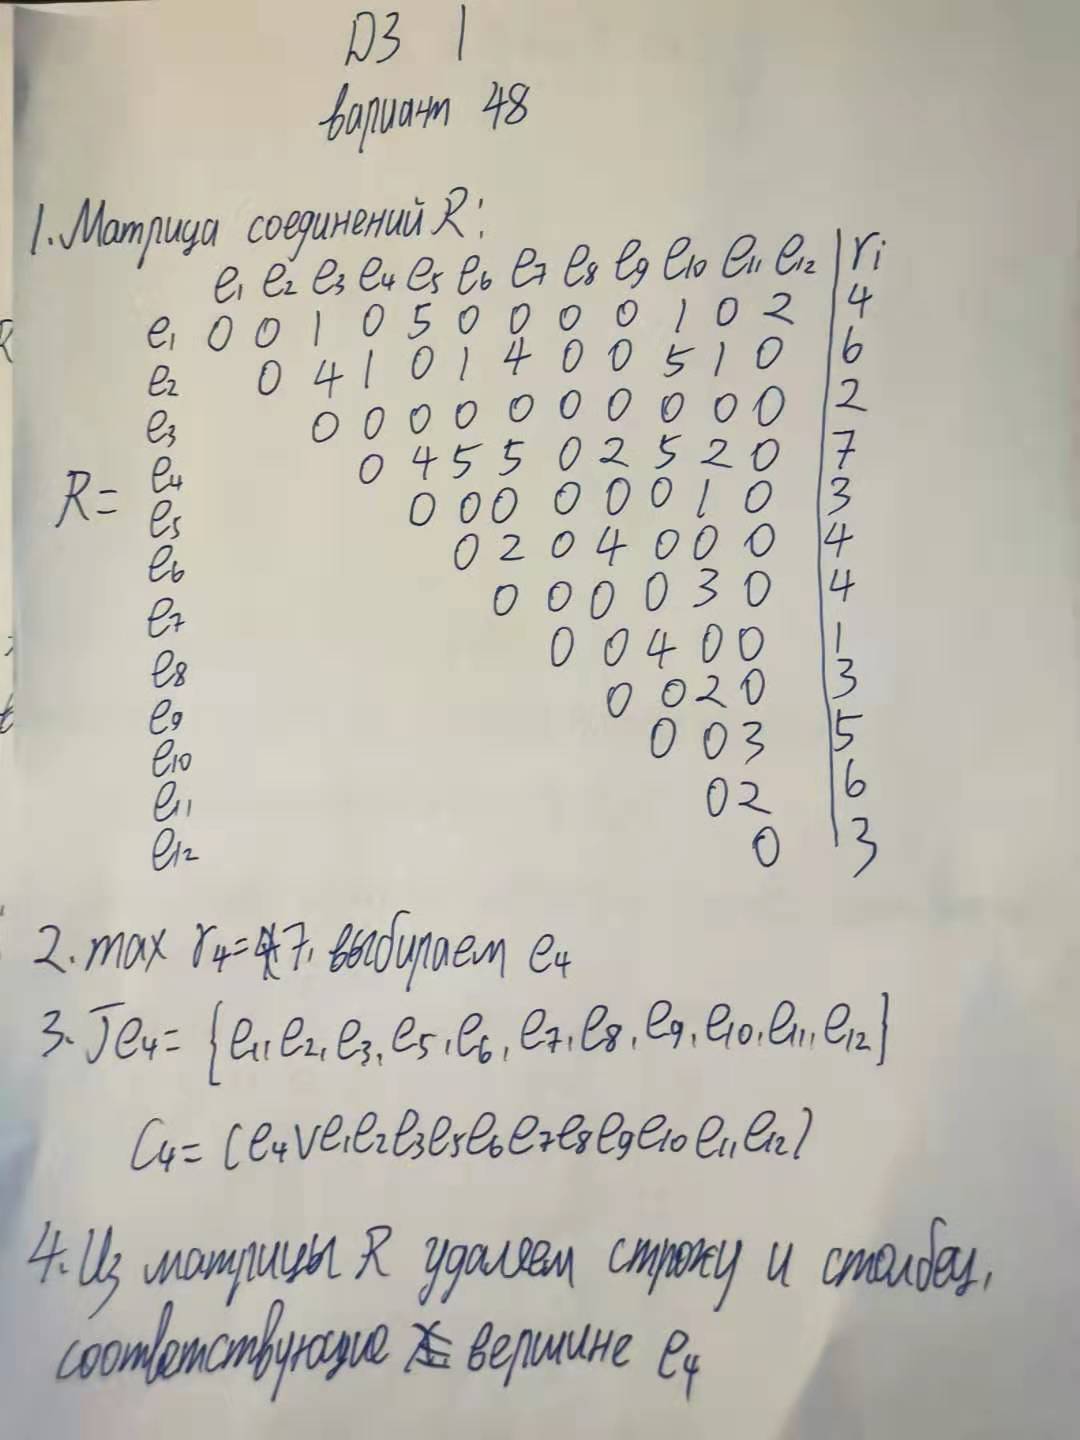 ДЗ 1
вариант 48
1. Матрица соединений R:
e1 e2 e3 e4 e5 e6 e7 e8 e9 e10 e11 e12 | ri
e1 0 0 1 0 5 0 0 0 0 1 0 2 | 4
e2 0 4 1 0 1 4 0 0 5 1 0 | 6
e3 0 0 0 0 0 0 0 0 0 0 | 2
R= e4 0 4 5 5 0 2 5 2 0 | 7
e5 0 0 0 0 0 0 1 0 | 3
e6 0 2 0 4 0 0 0 | 4
e7 0 0 0 0 3 0 | 4
e8 0 0 4 0 0 | 1
e9 0 0 2 0 | 3
e10 0 0 3 | 5
e11 0 2 | 6
e12 0 | 3
2. max r4=7, выбираем e4
3. Je4= {e1, e2, e3, e5, e6, e7, e8, e9, e10, e11, e12}
C4= (e4 V e1e2e3e5e6e7e8e9e10e11e12)
4. Из матрицы R удаляем строку и столбец,
соответствующие вершине e4